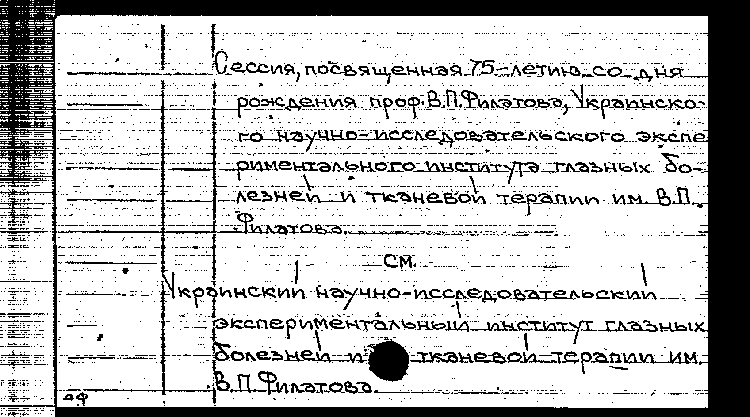 Сессия, посвященная 75-летию со дня
рождения проф. В.П. Филатова, Украинско-
го научно-исследовательского экспе
риментального института глазных бо-
лезней и тканевой терапии им. В.П.
Филатова.
см.
Украинский научно-исследовательский
экспериментальный институт глазных
болезней и тканевой терапии им.
В.П. Филатова.